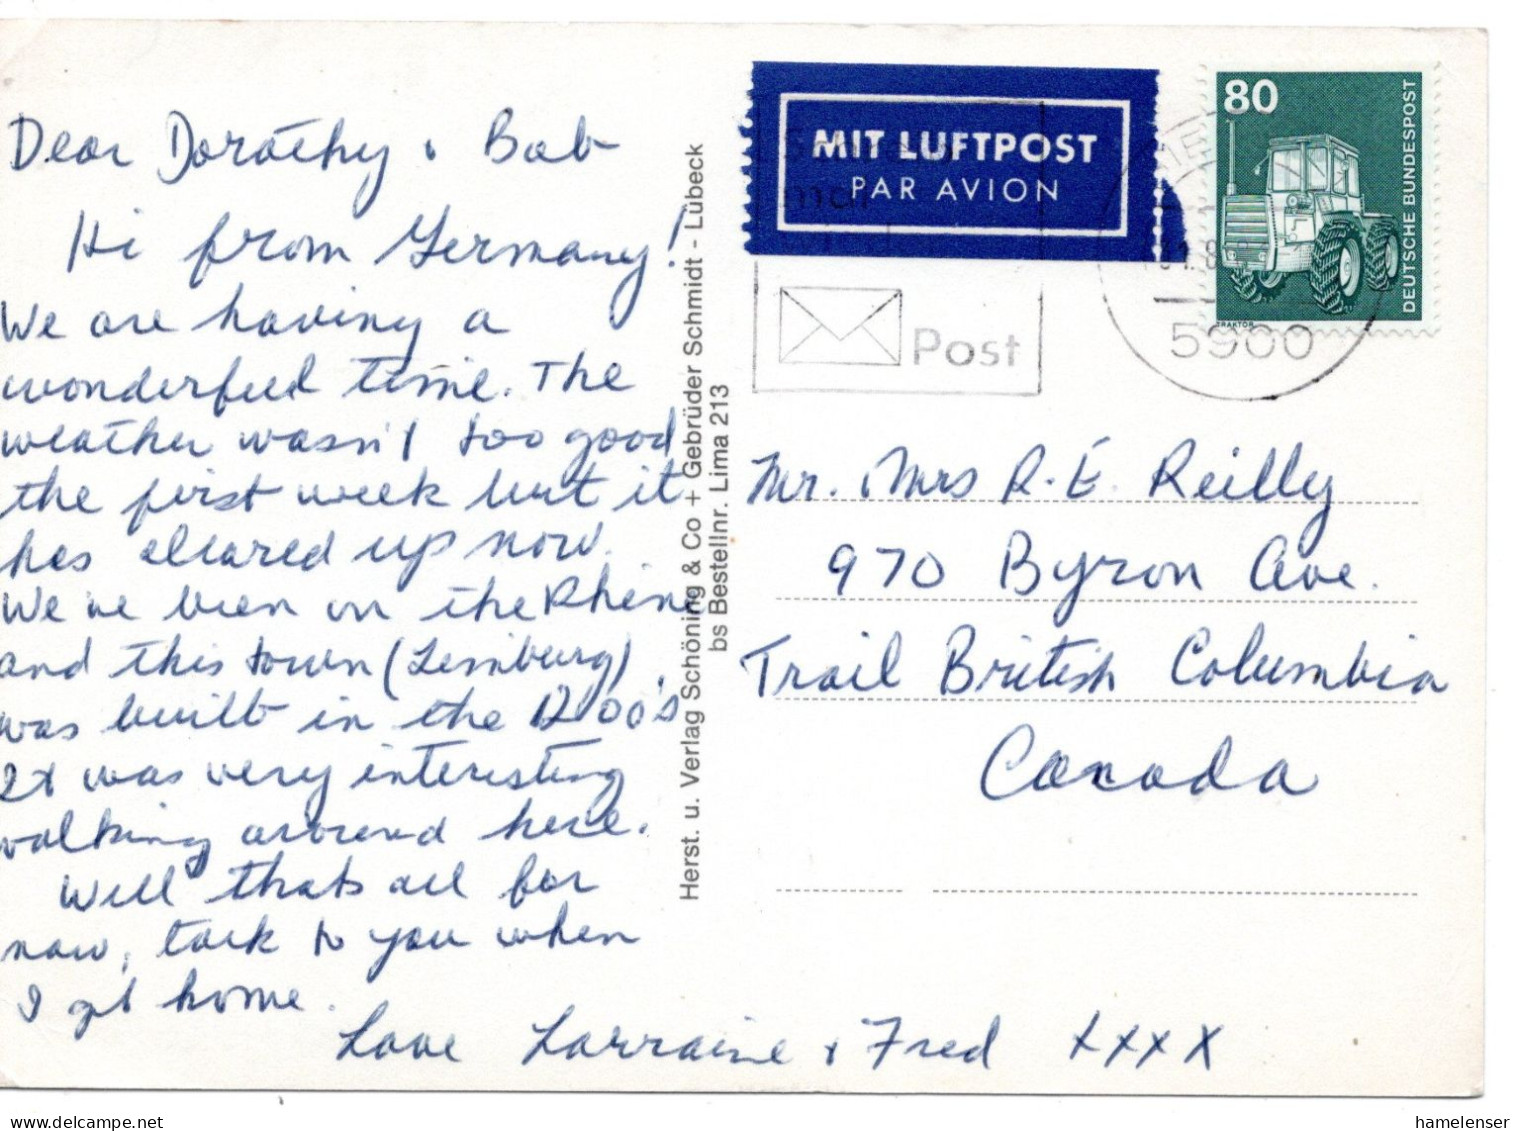 Dear Dorothy & Bob
Hi from Germany!
We are having a
wonderful time. The
weather wasn't too good
the first week but it
has cleared up now.
We've been on the Rhine
and this town (Limburg)
was built in the 1200's
It was very interesting
walking around here.
Well thats all for
now, talk to you when
I get home.
Love Lorraine & Fred xxxx
Herst. u. Verlag Schöning & Co + Gebrüder Schmidt - Lübeck
bs Bestellnr. Lima 213
MIT LUFTPOST
PAR AVION
Post
80
DEUTSCHE BUNDESPOST
TRAKTOR
5900
Mr. & Mrs R. E. Reilly
970 Byron Ave.
Trail British Columbia
Canada
hamelenser